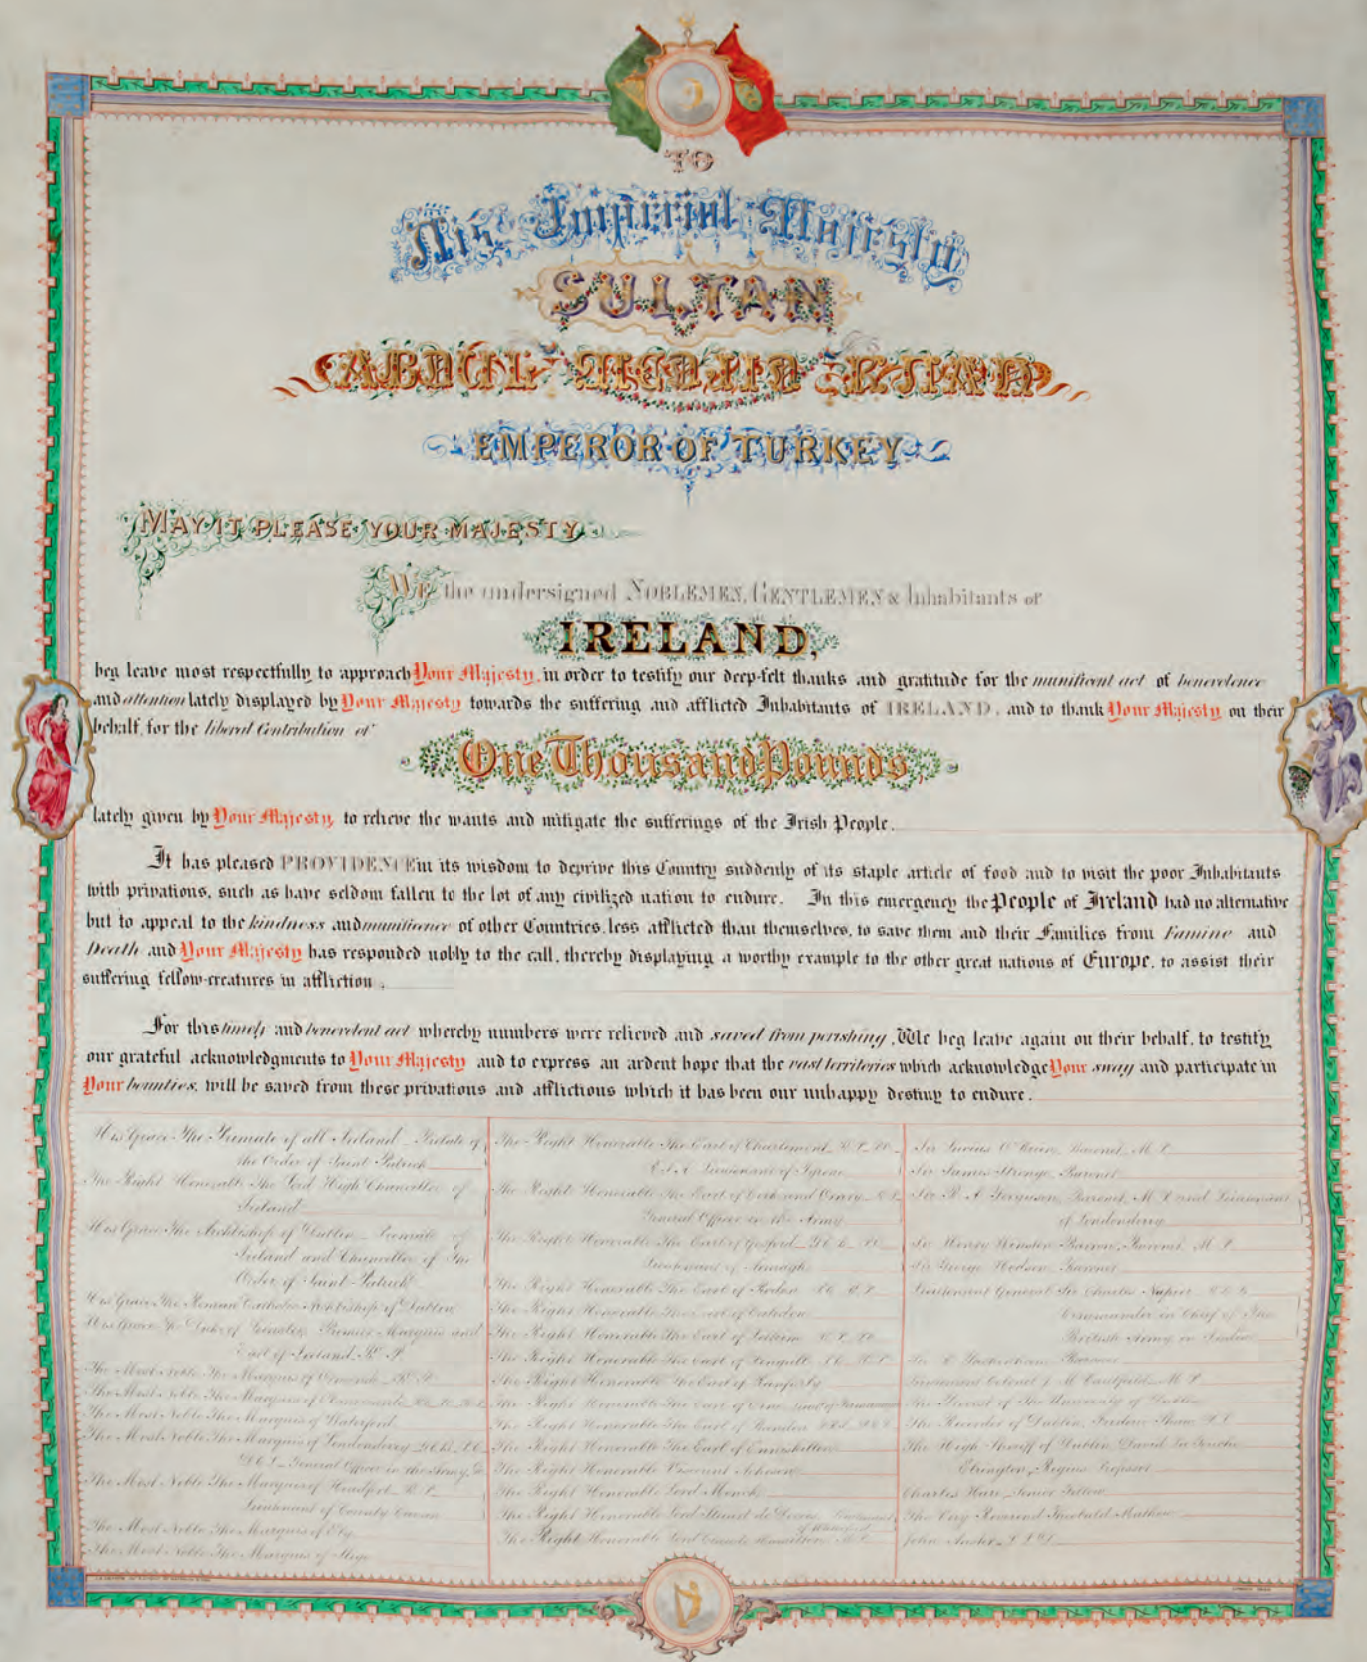 TO
His Imperial Majesty
SULTAN
ABDUL MEDJID KHAN
EMPEROR OF TURKEY
MAY IT PLEASE YOUR MAJESTY
WE the undersigned NOBLEMEN, GENTLEMEN & Inhabitants of
IRELAND,
beg leave most respectfully to approach Your Majesty, in order to testify our deep-felt thanks and gratitude for the munificent act of benevolence
and attention lately displayed by Your Majesty towards the suffering and afflicted Inhabitants of IRELAND, and to thank Your Majesty on their
behalf, for the liberal Contribution of
One Thousand Pounds,
lately given by Your Majesty, to relieve the wants and mitigate the sufferings of the Irish People.
It has pleased PROVIDENCE in its wisdom to deprive this Country suddenly of its staple article of food and to visit the poor Inhabitants
with privations, such as have seldom fallen to the lot of any civilized nation to endure. In this emergency the People of Ireland had no alternative
but to appeal to the kindness and munificence of other Countries, less afflicted than themselves, to save them and their Families from Famine and
Death and Your Majesty has responded nobly to the call, thereby displaying a worthy example to the other great nations of Europe, to assist their
suffering fellow-creatures in affliction.
For this timely and benevolent act whereby numbers were relieved and saved from perishing, We beg leave again on their behalf, to testify
our grateful acknowledgments to Your Majesty and to express an ardent hope that the vast territories which acknowledge Your sway and participate in
Your bounties, will be saved from these privations and afflictions which it has been our unhappy destiny to endure.
His Grace The Primate of all Ireland Prelate of
the Order of Saint Patrick
The Right Honorable The Lord High Chancellor of
Ireland
His Grace The Archbishop of Dublin Primate of
Ireland and Chancellor of the
Order of Saint Patrick
His Grace The Roman Catholic Archbishop of Dublin
His Grace The Duke of Leinster Premier Marquis and
Earl of Ireland
The Most Noble The Marquis of Ormonde
The Most Noble The Marquis of
The Most Noble The Marquis of Waterford
The Most Noble The Marquis of Londonderry
General Officer in the Army
The Most Noble The Marquis of Headfort
Lieutenant of County Cavan
The Most Noble The Marquis of Ely
The Most Noble The Marquis of Sligo
The Right Honorable The Earl of Charlemont
Lieutenant of Tyrone
The Right Honorable The Earl of Cork and Orrery
General Officer in the Army
The Right Honorable The Earl of Gosford
Lieutenant of Armagh
The Right Honorable The Earl of Roden
The Right Honorable The Earl of Caledon
The Right Honorable The Earl of Leitrim
The Right Honorable The Earl of
The Right Honorable The Earl of Ranfurly
The Right Honorable The Earl of
The Right Honorable The Earl of Bandon
The Right Honorable The Earl of Enniskillen
The Right Honorable Viscount Acheson
The Right Honorable Lord Monck
The Right Honorable Lord Stuart de Decies
The Right Honorable Lord Claude Hamilton
Sir Lucius O'Brien, Baronet, M.P.
Sir James Stronge, Baronet
Sir R. A. Ferguson, Baronet, M.P. and Lieutenant
of Londonderry
Sir Henry Winston Barron, Baronet, M.P.
Sir George Hodson Baronet
Lieutenant General Sir Charles Napier
Commander in Chief of the
British Army in India
Lieutenant Colonel J. M. Caulfeild, M.P.
The Provost of The University of Dublin
The Recorder of Dublin, Frederic Shaw
The High Sheriff of Dublin David La Touche
Elrington, Regius Professor
Charles Hare, Senior Fellow
The Very Reverend Theobald Mathew
John Anster